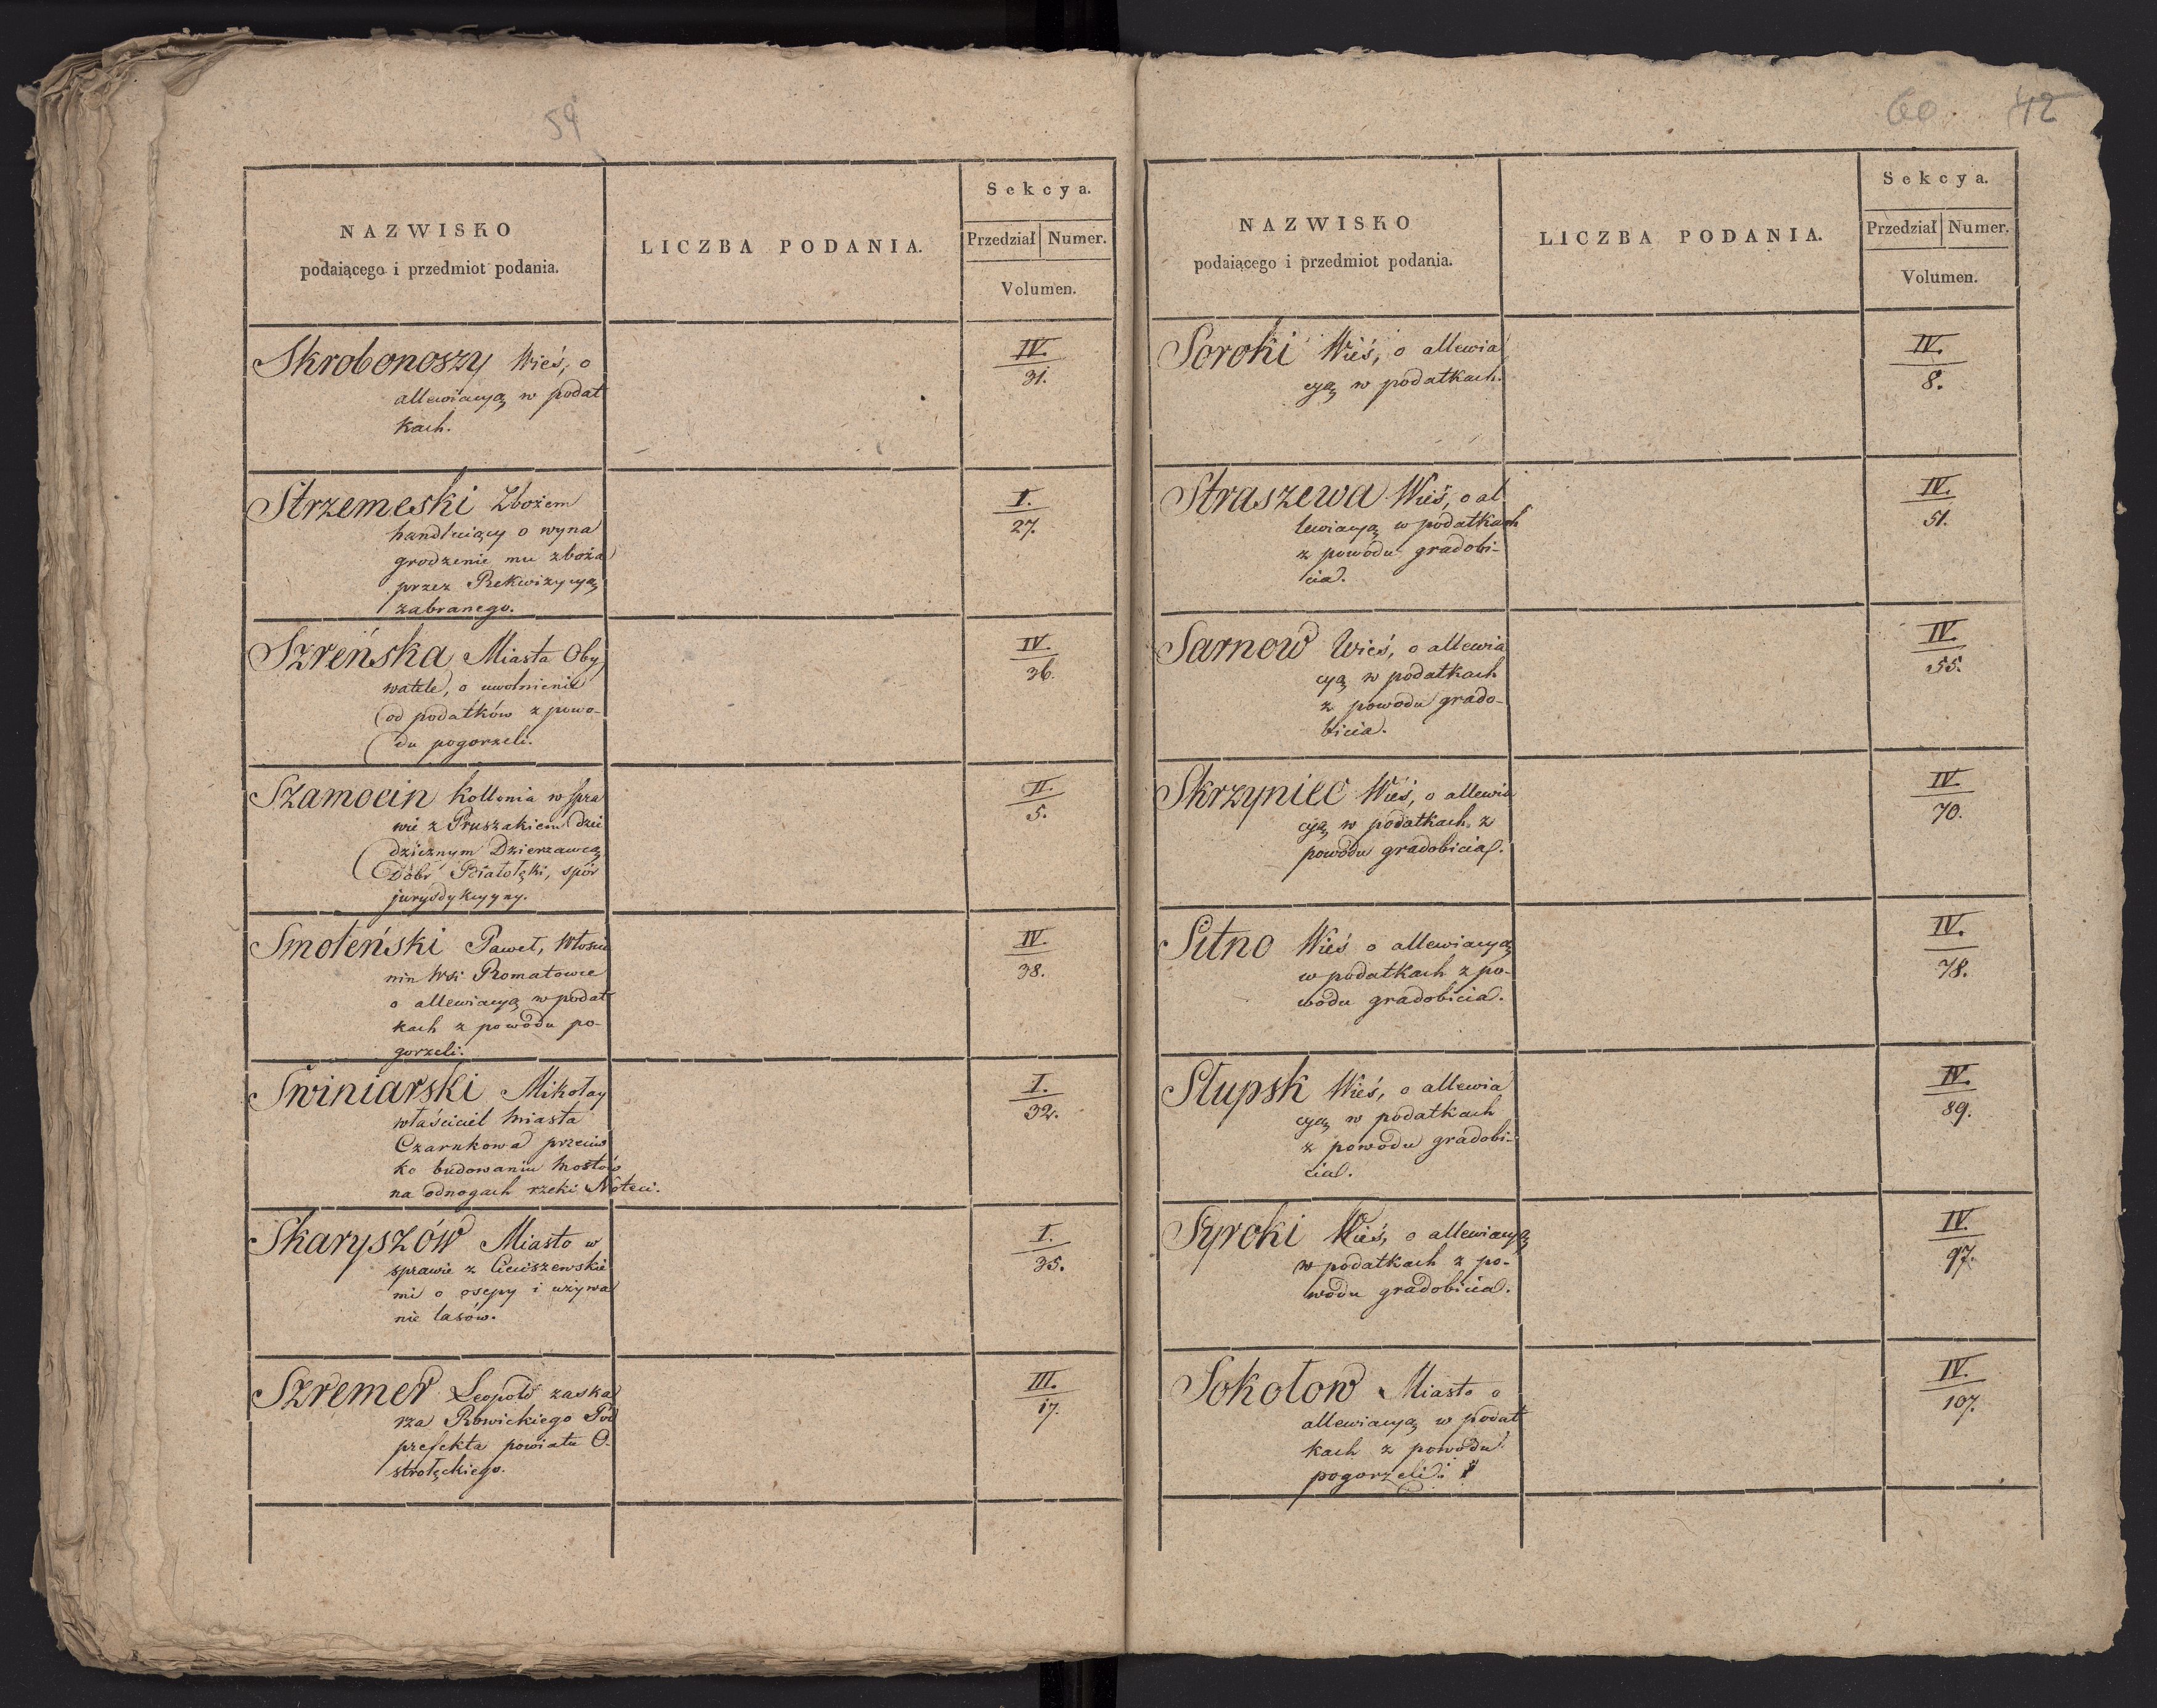 59
NAZWISKO
podaiącego i przedmiot podania.
LICZBA PODANIA.
Sekcya.
Przedział Numer.
Volumen.
Skrobonoszy Wieś, o
allewiacyą w podat
kach.
IV.
31.
Strzemeski Zbożem
handluiący o wyna
grodzenie mu zboża
przez Rekwizycyą
zabranego.
I.
27.
Szreńska Miasta Oby
watele, o uwolnienie
od podatków z powo-
du pogorzeli.
IV.
36.
Szamocin Kollonia w spra
wie z Pruszakiem dzie
dzicznym Dzierzawcą
Dóbr Białołęki, spór
jurysdykcyyny.
II.
5.
Smoleński Paweł, Włoscia
nin Wsi Romatowie
o allewiacyą w podat
kach z powodu po-
gorzeli.
IV.
38.
Swiniarski Mikołay
właściciel Miasta
Czarnkowa przeciw
ko budowaniu Mostów
na odnogach rzeki Noteci.
I.
32.
Skaryszów Miasto w
sprawie z Cieciszewskie
mi o osepy i używa
nie lasów.
I.
35.
Szremer Leopold zaska
rza Rowickiego Pod
prefekta powiatu O-
strołęckiego.
III.
17.
60 42
NAZWISKO
podaiącego i przedmiot podania.
LICZBA PODANIA.
Sekcya.
Przedział Numer.
Volumen.
Soroki Wieś, o allewia
cyą w podatkach.
IV.
8.
Straszewa Wieś, o al
lewiacyą w podatkach
z powodu gradobi-
cia.
IV.
51.
Sarnow Wieś, o allewia
cyą w podatkach
z powodu grado-
bicia.
IV.
55.
Skrzyniec Wieś, o allewia
cyą w podatkach z
powodu gradobicia.
IV.
70.
Sitno Wieś o allewiacyą
w podatkach z po-
wodu gradobicia.
IV.
78.
Słupsk Wieś, o allewia
cyą w podatkach
z powodu gradobi-
cia.
IV.
89.
Szyroki Wieś, o allewiacyą
w podatkach z po-
wodu gradobicia.
IV.
97.
Sokołow Miasto o
allewiacyą w podat
kach z powodu
pogorzeli.
IV.
107.